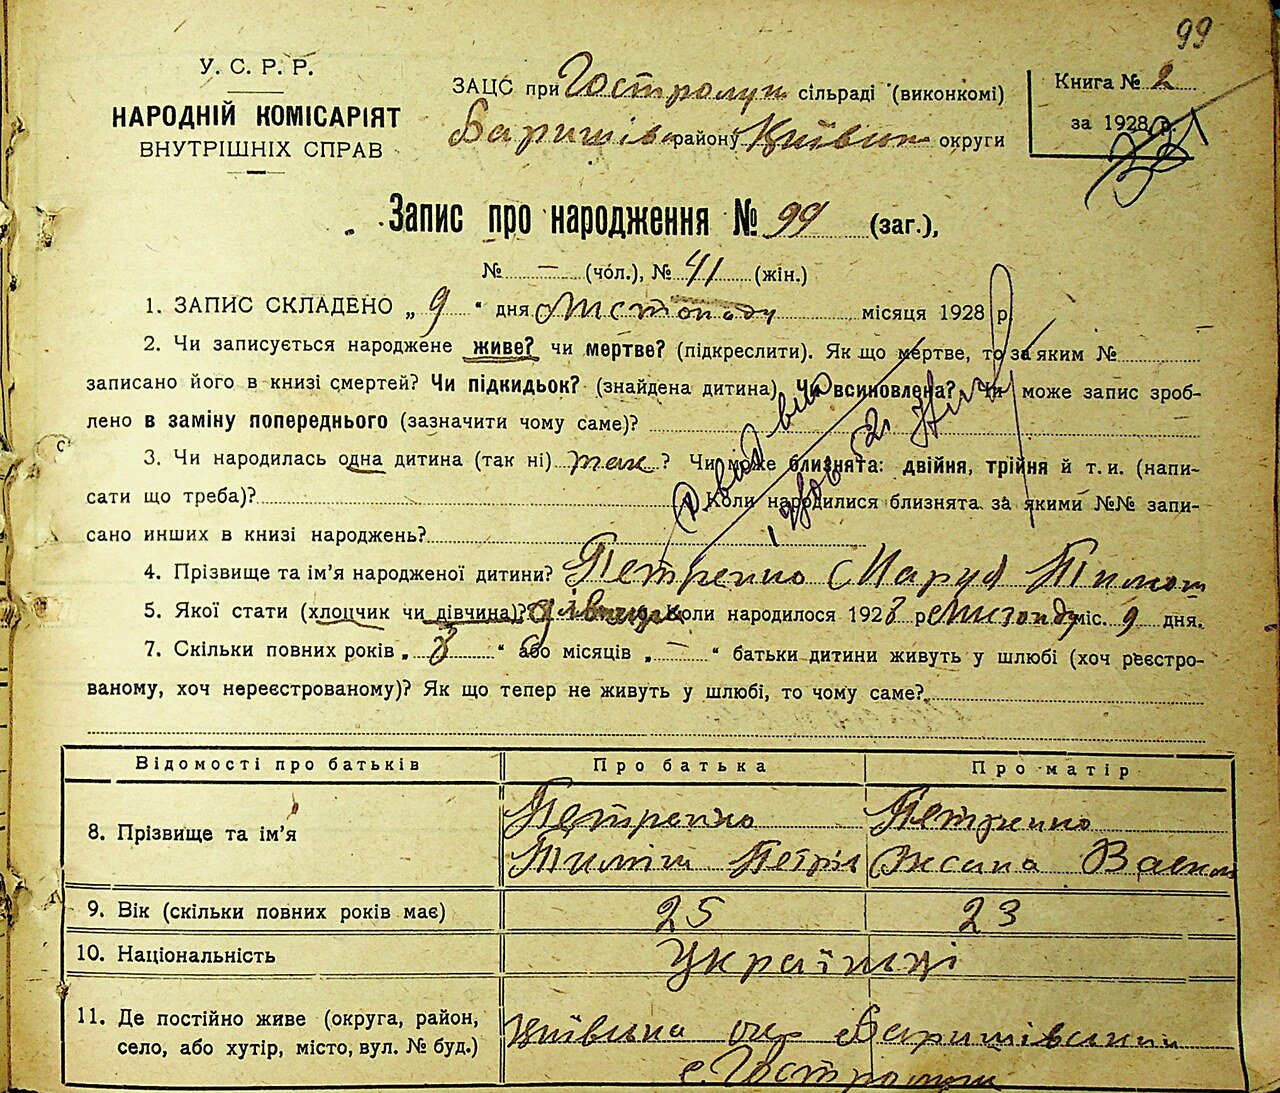 99
У. С. Р. Р.
НАРОДНІЙ КОМІСАРІЯТ
ВНУТРІШНІХ СПРАВ
ЗАЦС при Гостролуц сільраді (виконкомі)
Баришів району Київськ округи
Книга № 2
за 1928 р.
Запис про народження № 99 (заг.),
№ — (чол.), № 41 (жін.)
1. ЗАПИС СКЛАДЕНО „ 9 “ дня Листопаду місяця 1928 р.
2. Чи записується народжене живе? чи мертве? (підкреслити). Як що мертве, то за яким №
записано його в книзі смертей? Чи підкидьок? (знайдена дитина) Чи всиновлена? Чи може запис зроб-
лено в заміну попереднього (зазначити чому саме)?
3. Чи народилась одна дитина (так ні) так ? Чи може близнята: двійня, трійня й т. и. (напи-
сати що треба)? Коли народилися близнята за якими №№ запи-
сано инших в книзі народжень?
4. Прізвище та ім'я народженої дитини? Петренко Маруся Тимош
5. Якої стати (хлопчик чи дівчина)? дівчина Коли народилося 1928 р Листопаду міс. 9 дня.
7. Скільки повних років „ 3 “ або місяців „ — “ батьки дитини живуть у шлюбі (хоч реєстро-
ваному, хоч нереєстрованому)? Як що тепер не живуть у шлюбі, то чому саме?
Відомості про батьків Про батька Про матір
8. Прізвище та ім'я Петренко Петренко
Тиміш Петрів Оксана Васил
9. Вік (скільки повних років має) 25 23
10. Національність Українці
11. Де постійно живе (округа, район, село, або хутір, місто, вул. № буд.) Київська окр Баришівський
с. Гостролуч